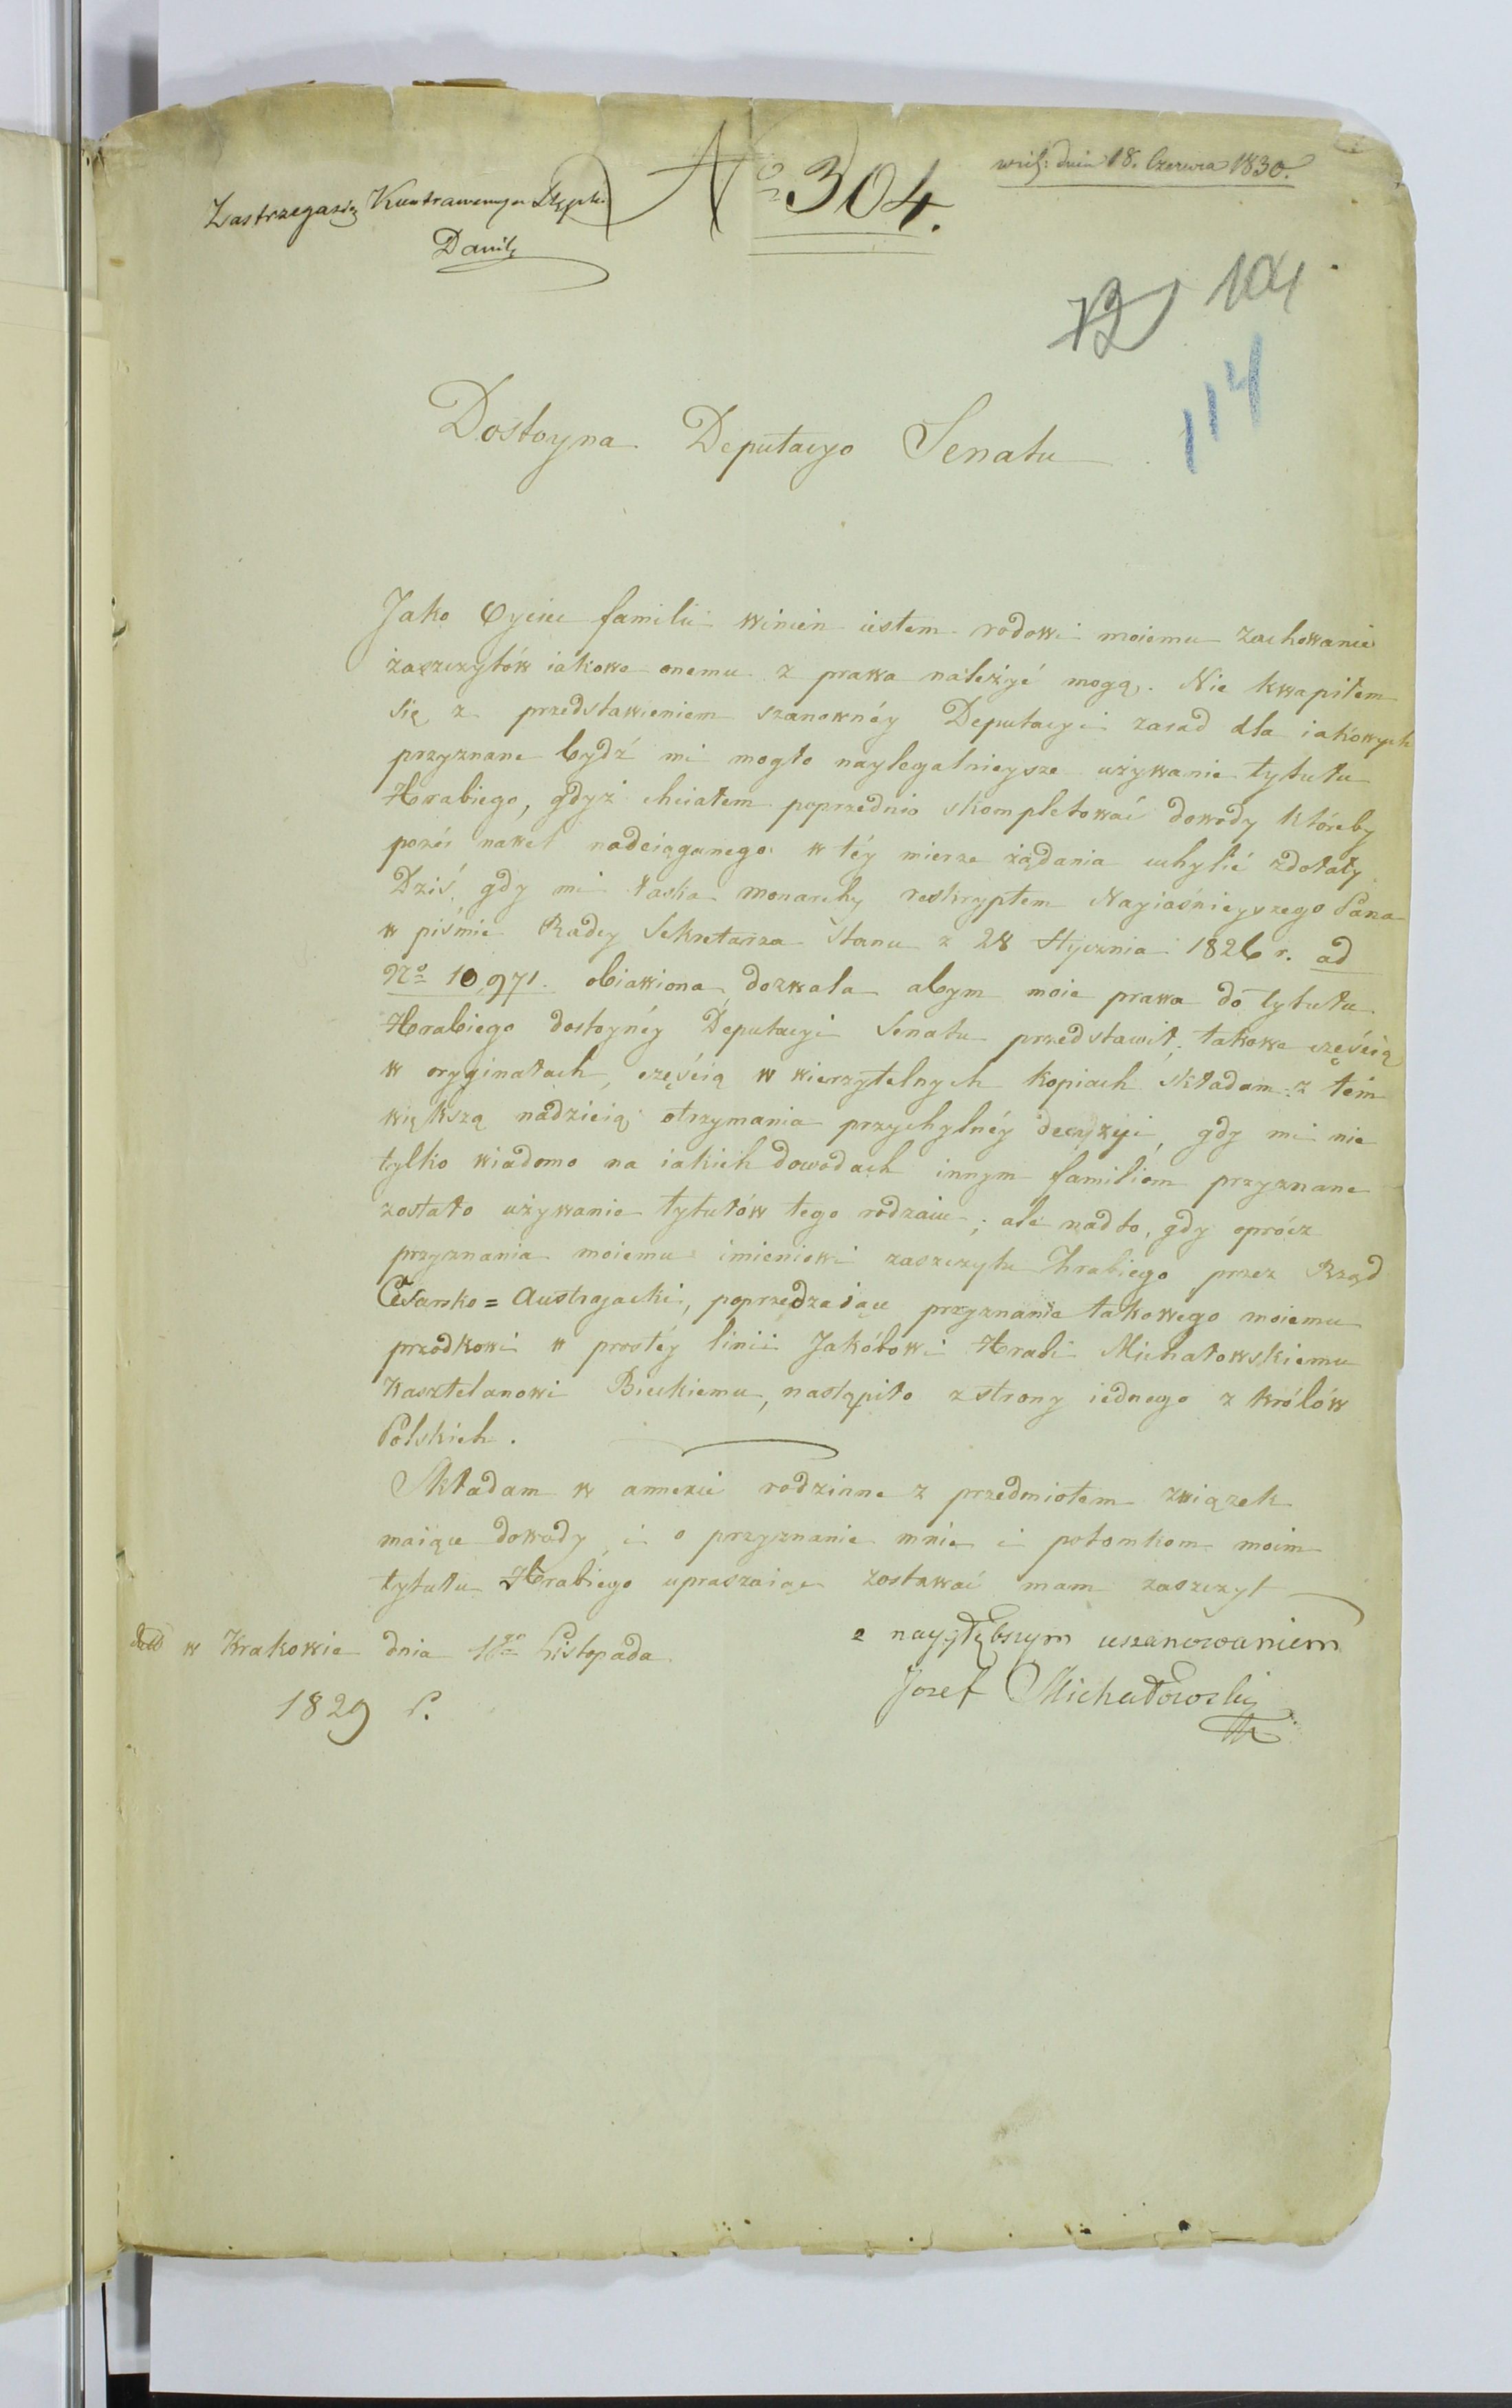 wnięs: dnia 18. Czerwca 1830.
Nº 304.
Zastrzegasię
114
Dostoyna Deputacyo Senatu
Jako Oyciec familii winien iestem rodowi moiemu zachowanie
zaszczytów iakowe onemu z prawa należyć mogą. Nie kwapiłem
się z przedstawieniem szanownéy Deputacyi zasad dla iakowych
przyznane bydź mi mogło naylegalnieysze używanie tytułu
Hrabiego, gdyż chciałem poprzednio skompletować dowody któreby
pozór nawet nadciąganego w téy mierze żądania uchylić zdołały.
Dziś, gdy mi łaska monarchy reskryptem Nayiaśnieyszego Pana
w piśmie Radcy Sekretarza Stanu z 28 Stycznia 1826 r. ad
Nº 10,971. obiawiona, dozwala abym moie prawa do tytułu
Hrabiego dostoynéy Deputacyi Senatu przedstawił; takowe częścią
w oryginałach, częścią w wierzytelnych kopiach składam: z tém
większą nadzieią otrzymania przychylnéy decyzyi, gdy mi nie
tylko wiadomo na iakich dowodach innym familiom przyznane
zostało używanie tytułów tego rodzaiu; ale nadto, gdy oprócz
przyznania moiemu imieniowi zaszczytu Hrabiego przez Rząd
Cesarsko=Austryacki, poprzedzaiące przyznanie takowego moiemu
przodkowi w prostéy linii Jakóbowi Hrabi Michałowskiemu
Kasztelanowi Bieckiemu, nastąpiło z strony iednego z królów
Polskich.
Składam w annexie rodzinne z przedmiotem związek
maiące dowody, i o przyznanie mnie i potomkom moim
tytułu Hrabiego upraszaiąc zostawać mam zaszczyt
z naygłębszym uszanowaniem
w Krakowie dnia Listopada
1829 r.
Jozef Michałowski